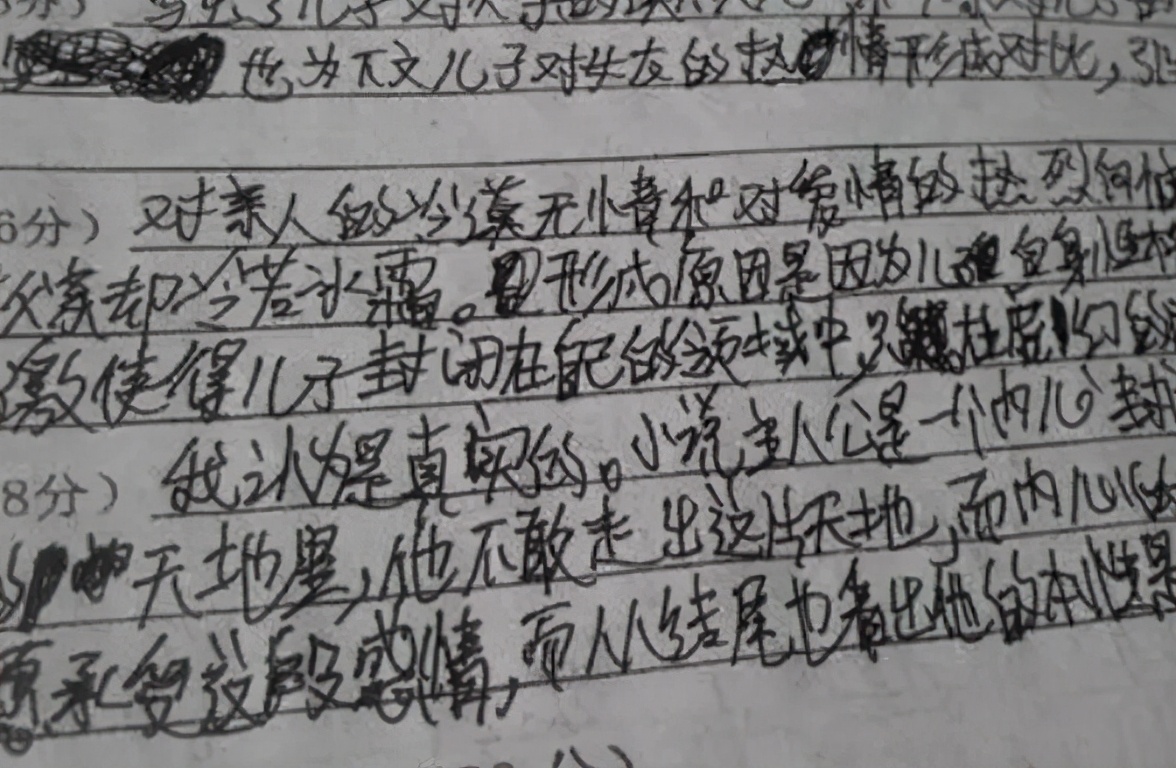 也为下文儿子对失友的热情形成对比，引
6分）对亲人的冷漠无情和对爱情的热烈向
父亲却冷若冰霜。形成原因是因为儿子自身性
激使得儿子封闭在自己的领域中，只在虚幻的
我认为是真实的。小说主人公是一个内心封
8分）
天地里，他不敢走出这片天地，而内心
承受这段感情，而从结尾也看出他的本性是
分）